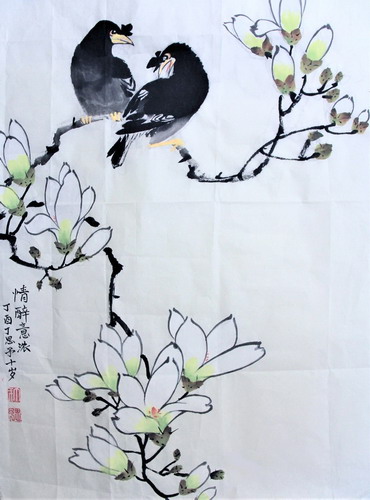 情醉意浓
丁酉丁思予十岁